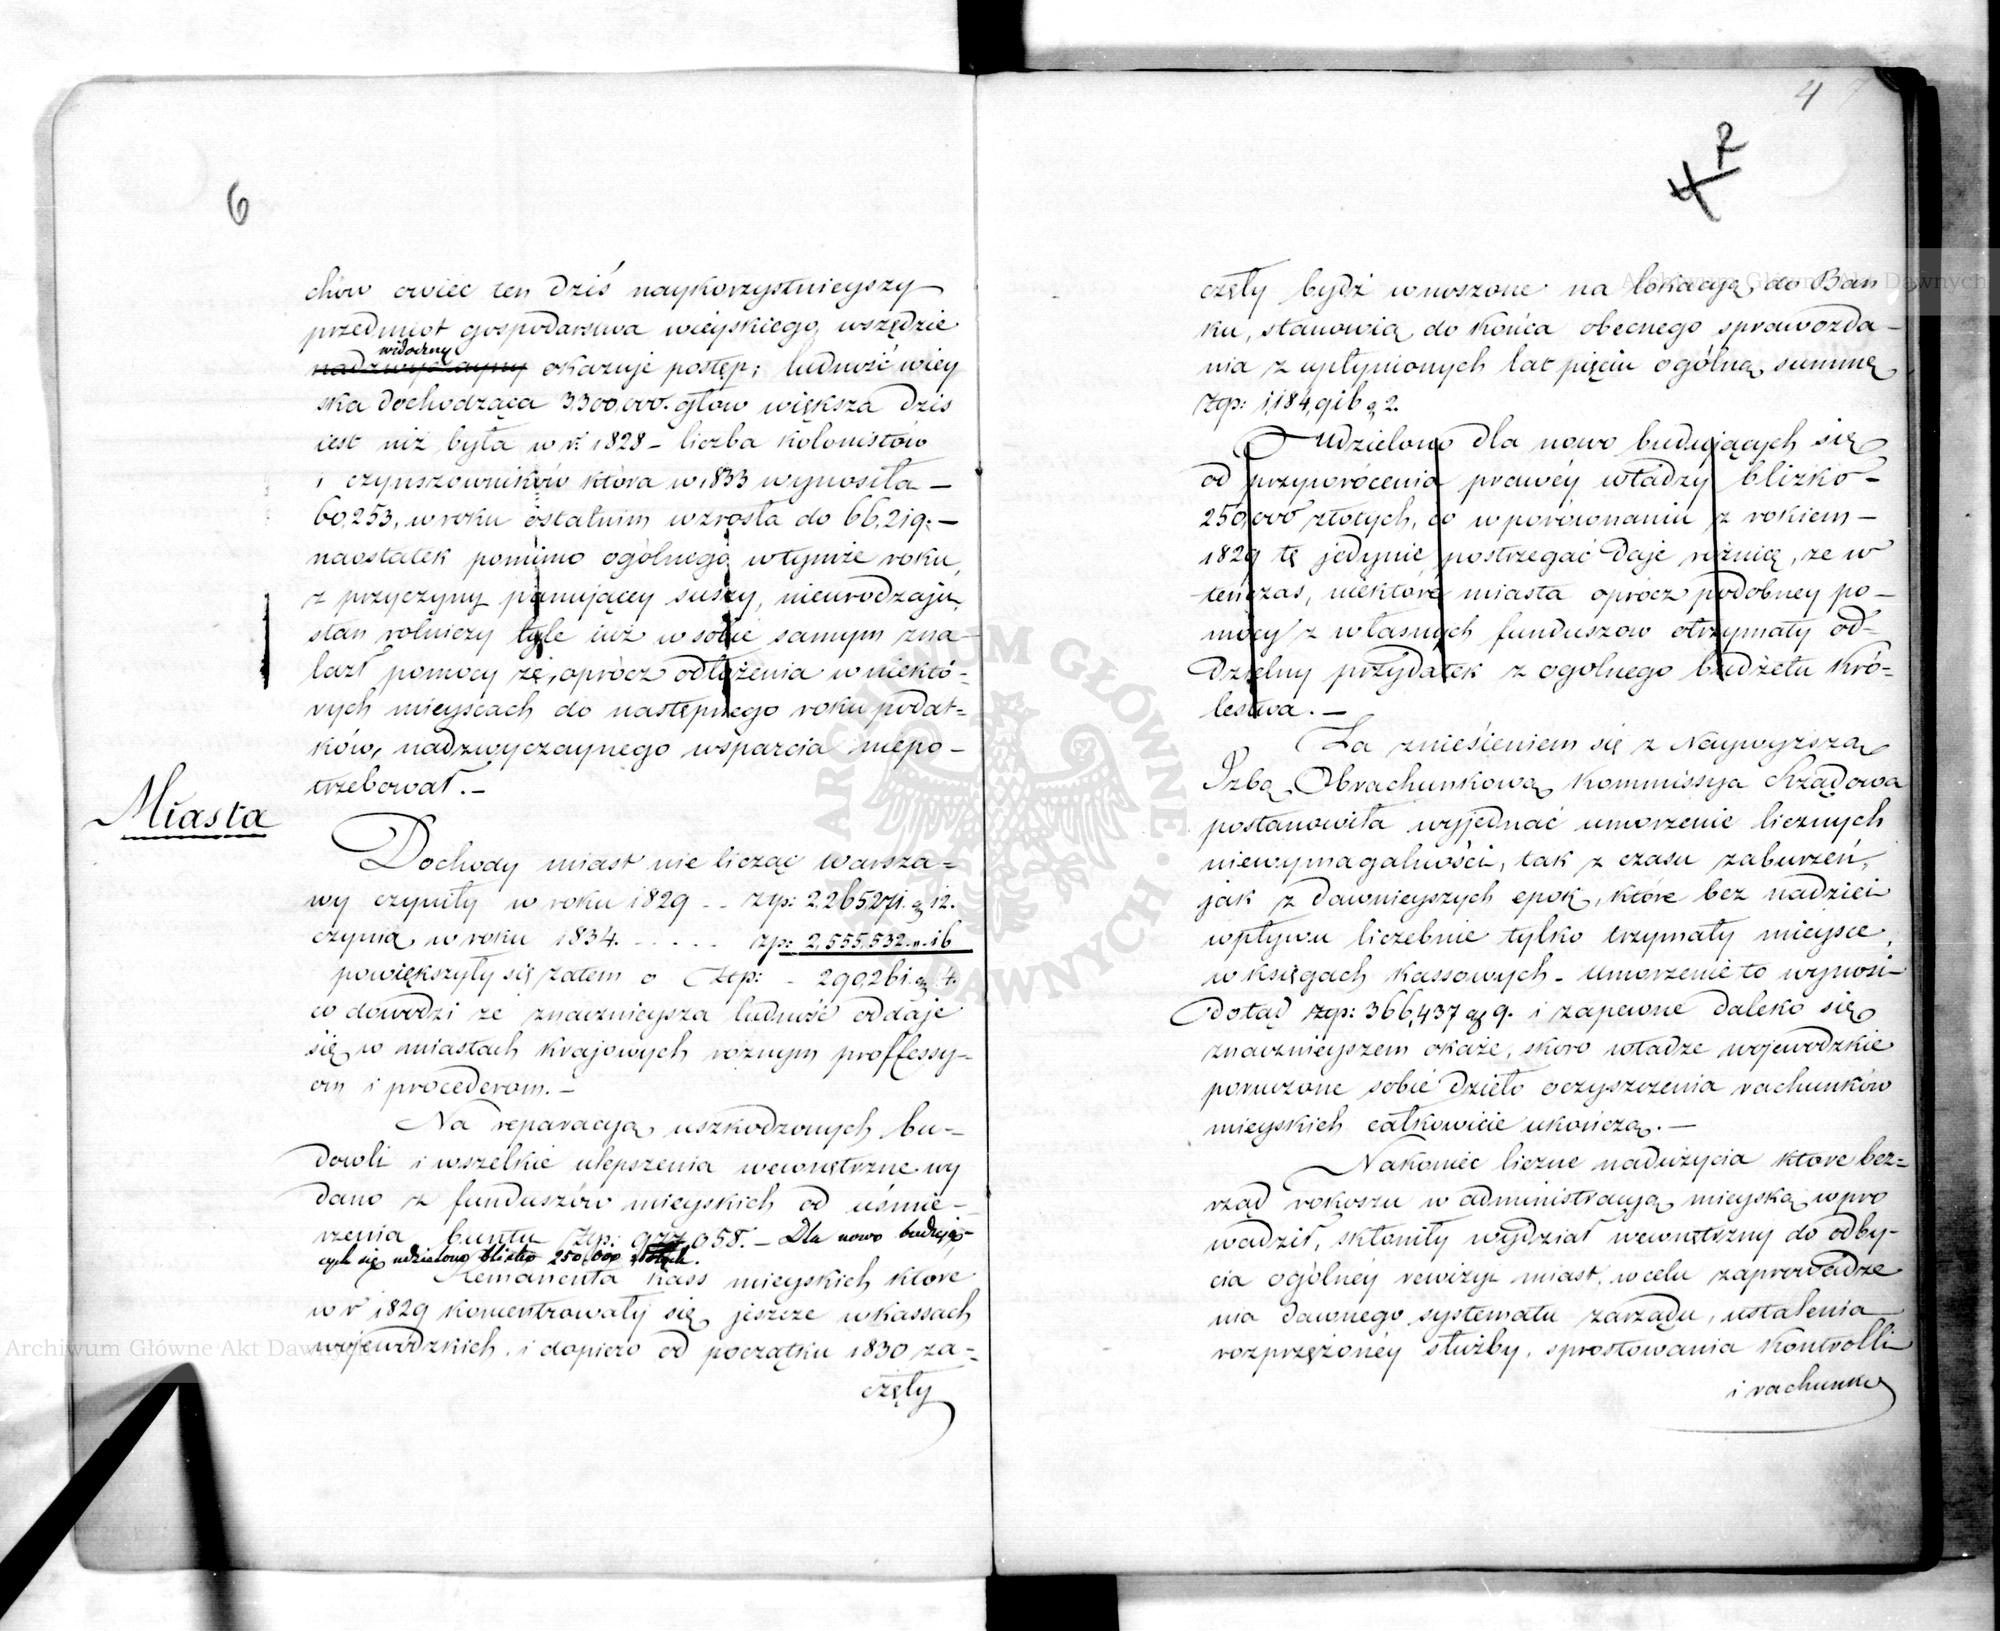 6
chów owiec ten dziś naykorzystnieyszy
przedmiot gospodarstwa wieyskiego, wszędzie
widoczny
nadzwyczayny okazuje postęp; ludność wiey
ska dochodząca 3,300,000. głow większa dziś
iest niż była w r: 1828 – liczba kolonistów
i czynszowników która w 1833 wynosiła –
60,253, w roku ostatnim wzrosła do 66,219. –
naostatek pomimo ogólnego w tymże roku,
z przyczyny panującey suszy, nieurodzaju,
stan rolniczy tyle iuż w sobie samym zna-
lazł pomocy że, oprócz odłożenia w niektó-
rych mieyscach do następnego roku podat=
ków, nadzwyczaynego wsparcia niepo-
trzebował. –
Miasta
Dochody miast nie licząc Warsza=
wy czyniły w roku 1829 .. zp: 2,265,271. g 12.
czynią w roku 1834. . . . . . zp: 2,555,532. „ 16
powiększyły się zatem o Złp: - 290,261. g 4.
co dowodzi że znacznieysza ludność oddaje
się w miastach krajowych roznym proffessy-
om i procederom. –
Na reparacyą uszkodzonych bu-
dowli i wszelkie ulepszenia wewnętrzne wy
dano z funduszów mieyskich od uśmie-
rzenia buntu Złp: 058. – Dla nowo budują-
cych się udzielono blisko 250,000 złotych.
Remanenta kass mieyskich które
w r 1829 koncentrowały się jeszcze w kassach
wojewódzkich, i dopiero od początku 1830 za-
częły
4 7
4
częły bydź wnoszone na lokacyą do Ban
ku, stanowią do końca obecnego sprawozda-
nia z upłynionych lat pięciu ogólną summę
Złp: 1,184,916 g 2.
Udzielono dla nowo budujących się
od przywrócenia prawéy władzy blizko -
250,000 złotych, co w porównaniu z rokiem -
1829 tę jedynie postrzegać daje różnicę, że w
tenczas, niektóre miasta oprócz podobney po-
mocy z własnych funduszow otrzymały od-
dzielny przydatek z ogolnego budżetu Kró-
lestwa. –
Za zniesieniem się z Naywyższą
Izbą Obrachunkową Kommissya Rządowa
postanowiła wyjednać umorzenie licznych
niewymagalności, tak z czasu zaburzeń,
jak z dawnieyszych epok, które bez nadziei
wpływu liczebnie tylko trzymały mieysce,
w księgach kassowych. Umorzenie to wynosi
dotąd złp: 366,437 g 9. i zapewne daleko się
znacznieyszem okaże, skoro władze wojewodzkie
poruczone sobie dzieło oczyszczenia rachunków
mieyskich całkowicie ukończą. –
Nakoniec liczne nadużycia które bez=
rząd rokoszu w administracyą mieyską wpro
wadził, skłoniły wydział wewnętrzny do odby-
cia ogólnéy rewizyi miast, w celu zaprowadze
nia dawnego systematu zarządu, ustalenia
rozprzężonéy służby, sprostowania kontrolli
i rachunku
ARCHIWUM GŁÓWNE AKT DAWNYCH
Archiwum Główne Akt Dawnych
Archiwum Główne Akt Dawnych